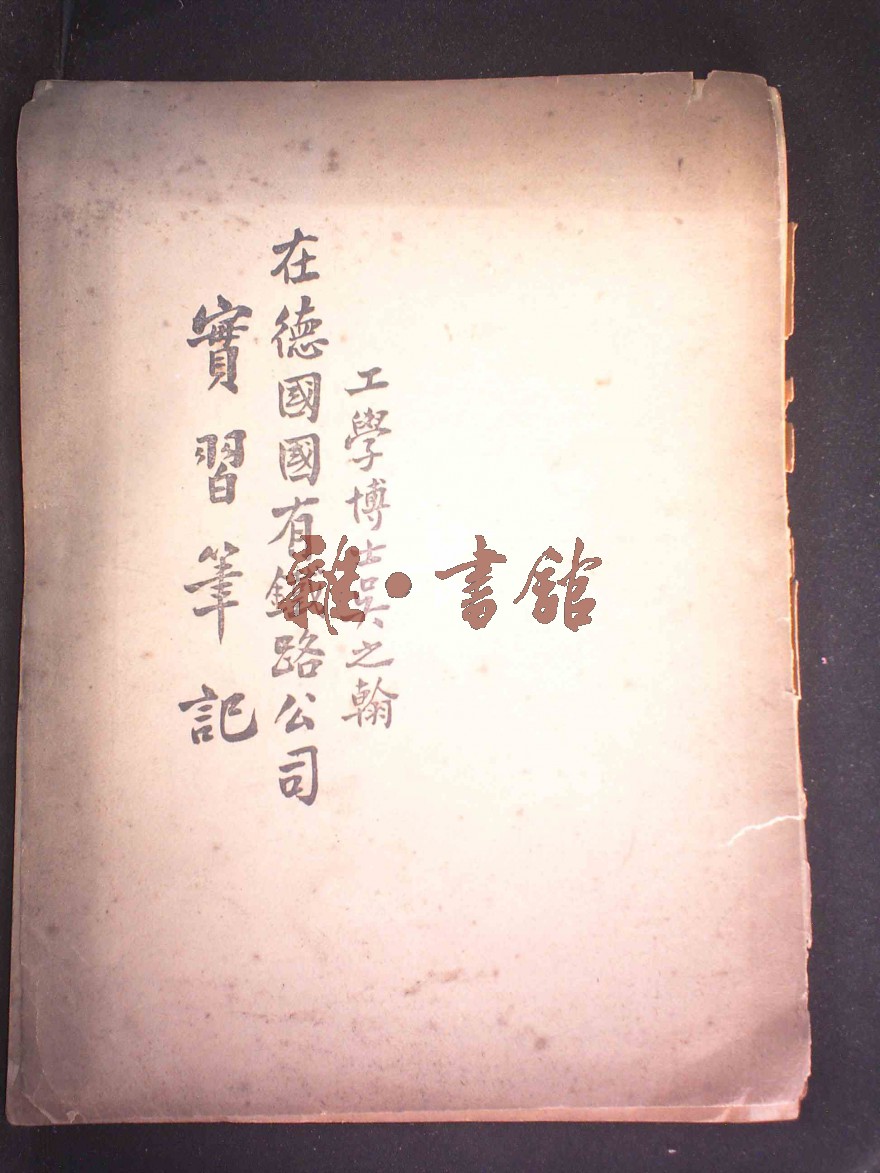 工學博士吳之翰
在德國國有鐵路公司
實習筆記
雜·書館